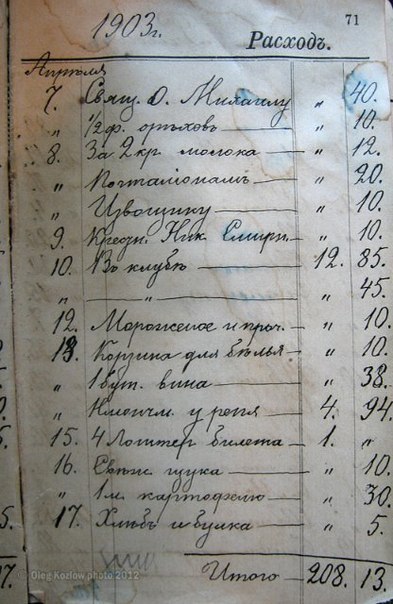 71
1903 г.
Расходъ.
Апрѣля
7. Свящ. О. Михаилу „ 40.
„ 1/2 ф. орѣховъ „ 10.
8. За 2 кр. молока „ 12.
„ Почталіонамъ „ 20.
„ Извощику „ 10.
9. Ник. Смирн. „ 10.
10. Въ клубѣ 12. 85.
„ „ „ 45.
12. Мороженое и проч. „ 10.
13. Корзина для бѣлья „ 10.
„ 1 бут. вина „ 38.
„ у 4. 94.
15. 4 Лоттер билета 1. „
16. Свѣж. щука „ 10.
„ 1 м. картофелю „ 30.
17. Хлѣбъ и булка „ 5.
Итого 208. 13.
© Oleg Kozlow photo 2012